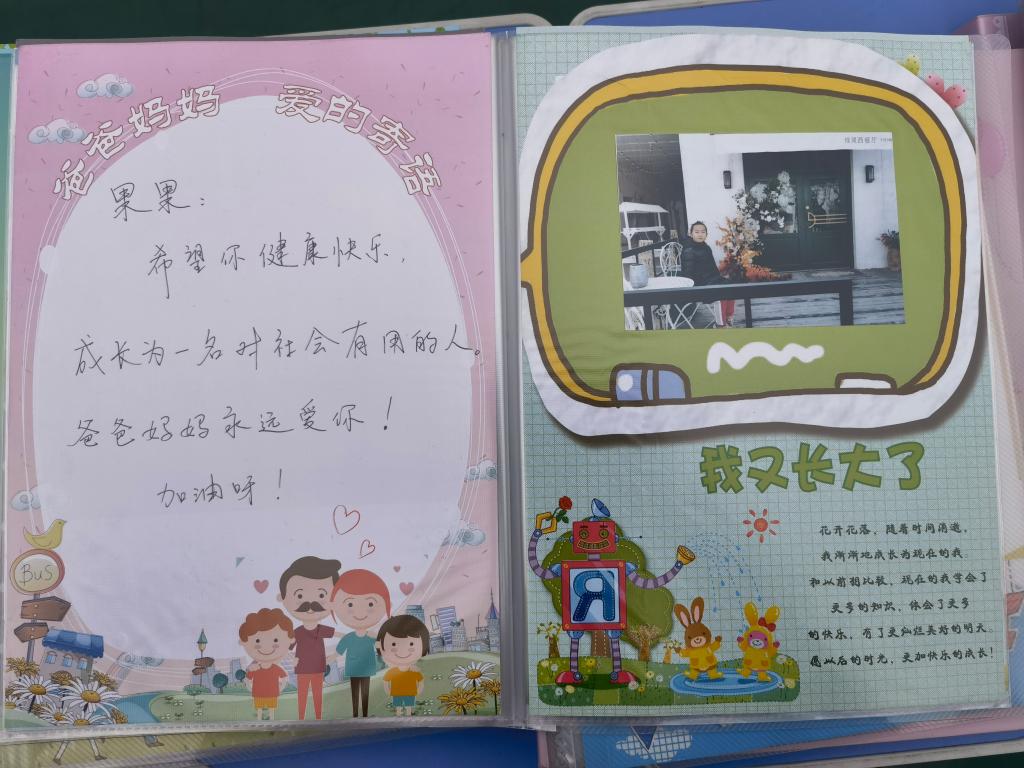 爸爸妈妈 爱的寄语
果果：
希望你健康快乐，
成长为一名对社会有用的人。
爸爸妈妈永远爱你！
加油呀！
BUS
我又长大了
R
花开花落，随着时间消逝，
我渐渐地成长为现在的我。
和从前相比较，现在的我学会了
更多的知识，体会了更多
的快乐，有了更灿烂美好的明天。
愿从后的时光，更加快乐的成长！